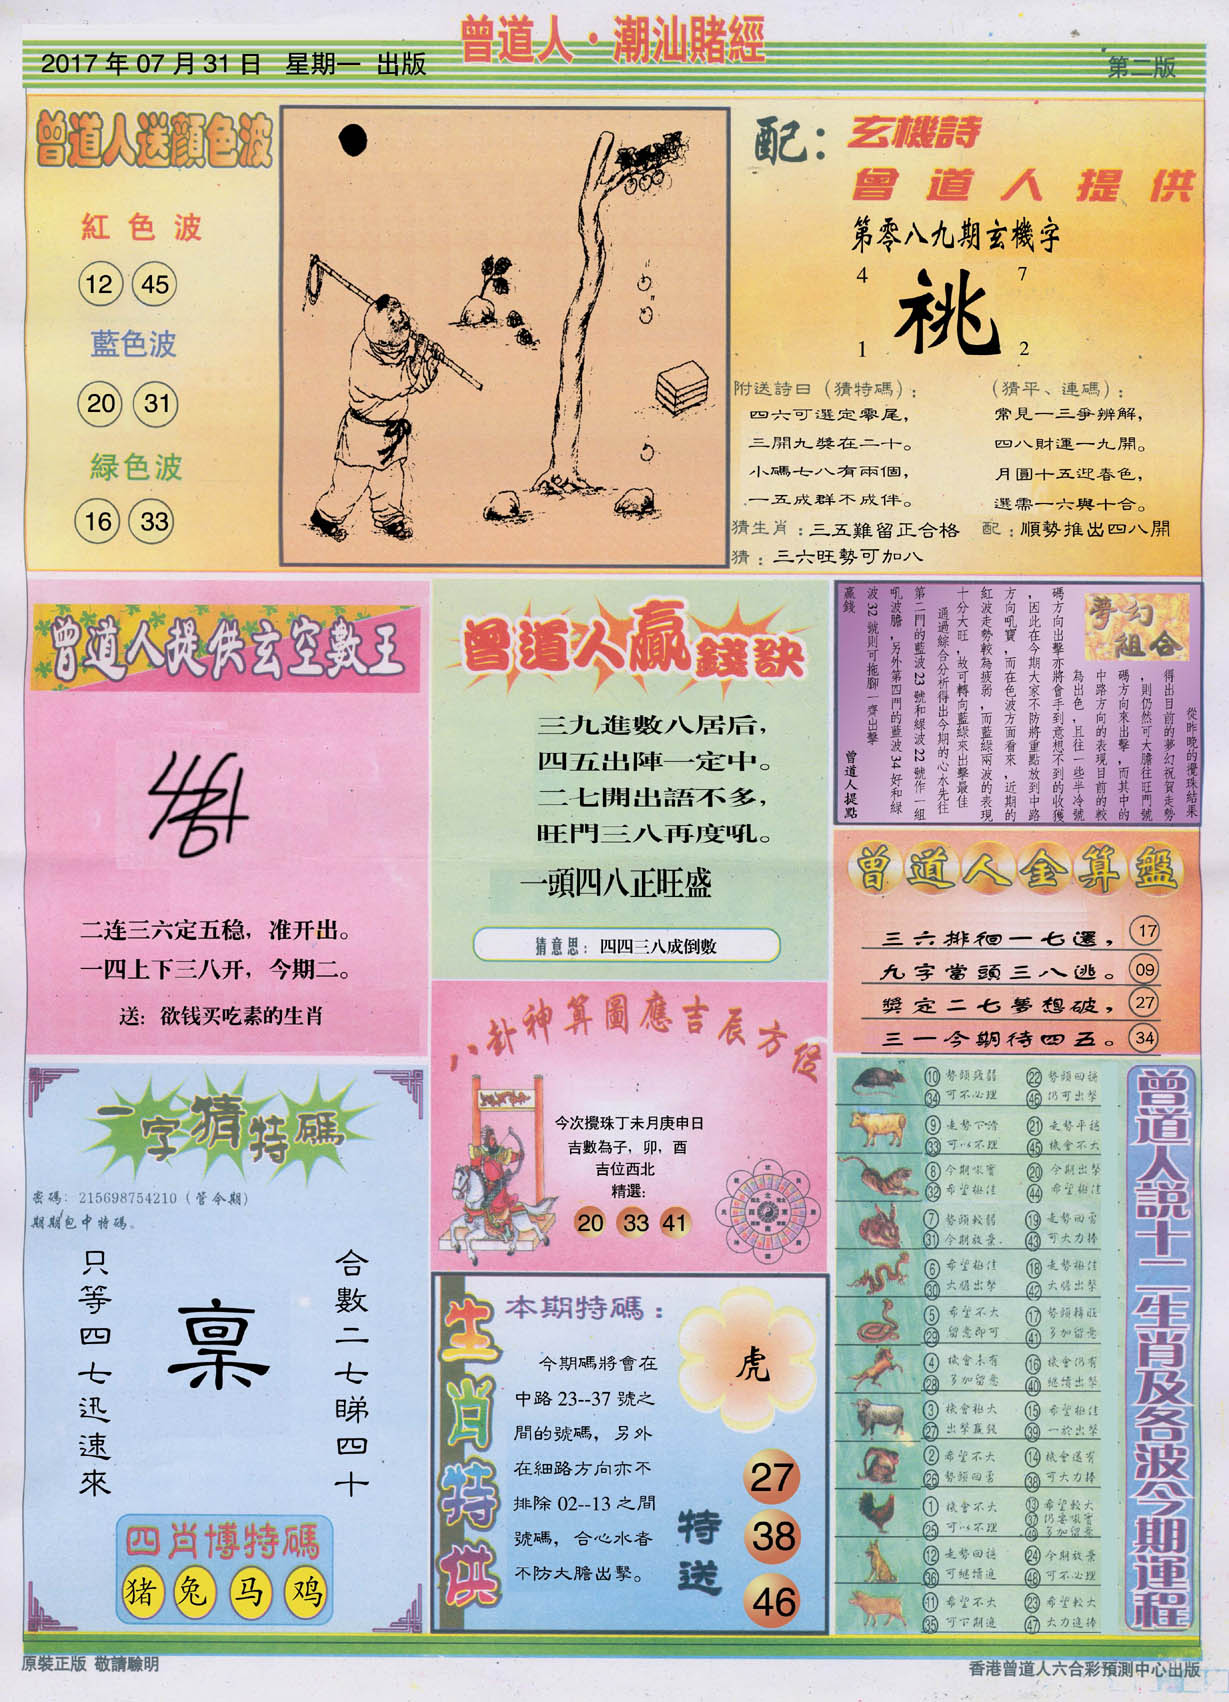 曾道人·潮汕賭經
2017 年 07 月 31 日 星期一 出版
第二版
曾道人送顏色波
紅色波
12 45
藍色波
20 31
緑色波
16 33
配：玄機詩
曾道人提供
第零八九期玄機字
4 7
祧
1 2
附送詩曰（猜特碼）：
四六可選定零尾，
三開九獎在二十。
小碼七八有兩個，
一五成群不成伴。
（猜平、連碼）：
常見一三爭辨解，
四八財運一九開。
月圓十五迎春色，
選需一六與十合。
猜生肖：三五難留正合格
配：順勢推出四八開
猜：三六旺勢可加八
曾道人提供玄空數王
二连三六定五稳，准开出。
一四上下三八开，今期二。
送：欲钱买吃素的生肖
曾道人贏錢訣
三九進數八居后，
四五出陣一定中。
二七開出語不多，
旺門三八再度吼。
一頭四八正旺盛
猜意思：四四三八成倒數
夢幻組合
從昨晚的攪珠結果
得出目前的夢幻祝賀走勢
，則仍然可大膽往旺門號
碼方向來出擊，而其中的
中路方向的表現目前的較
為出色，且往一些半冷號
碼方向出擊亦將會手到意想不到的收獲
，因此在今期大家不防將重點放到中路
方向吼寶，而在色波方面看來，近期的
紅波走勢較為疲弱，而藍緑兩波的表現
十分大旺，故可轉向藍緑來出擊最佳
通過綜合分析得出今期的心水先往
第二門的藍波 23 號和緑波 22 號作一組
吼波膽，另外第四門的藍波 34 好和緑
波 32 號則可拖腳一齊出擊
贏錢
曾道人提點
曾道人金算盤
三六排徊一七選， 17
九字當頭三八逃。 09
獎定二七夢想破， 27
三一今期待四五。 34
一字猜特碼
密碼：215698754210（管今期）
期期包中特碼。
合數二七睇四十
稟
只等四七迅速來
四肖博特碼
猪 兔 马 鸡
八卦神算圖應吉辰方位
今次攪珠丁未月庚申日
吉數為子，卯，酉
吉位西北
精選：
20 33 41
生肖特供
本期特碼：
今期碼將會在
中路 23--37 號之
間的號碼，另外
在細路方向亦不
排除 02--13 之間
號碼，合心水者
不防大膽出擊。
虎
特送
27
38
46
曾道人説十二生肖及各波今期運程
10 勢頭疲弱 22 勢頭回穩
34 可不必理 46 仍可出擊
9 走勢下滑 21 走勢平穩
33 可以不理 45 機會不大
8 今期吼寶 20 今期出擊
32 希望極佳 44 希望極佳
7 勢頭較弱 19 走勢回勇
31 今期放棄. 43 可大力捧
6 希望極佳 18 走勢極佳
30 大膽出擊 42 大膽出擊
5 希望不大 17 勢頭轉旺
29 留意即可 41 多加留意
4 機會未有 16 機會仍有
28 多加留意 40 繼續出擊
3 機會極大 15 希望極佳
27 出擊贏錢 39 一於出擊
2 希望不大 14 機會還有
26 勢頭回勇 38 可大力捧
1 機會不大 13 希望較大
25 可以不理 37 仍要吼寶
49 多加留意
12 走勢回穩 24 今期放棄
36 可繼續追 48 可不必理
11 希望不大 23 希望較大
35 可下期追 47 大力進捧
原裝正版 敬請驗明
香港曾道人六合彩預測中心出版